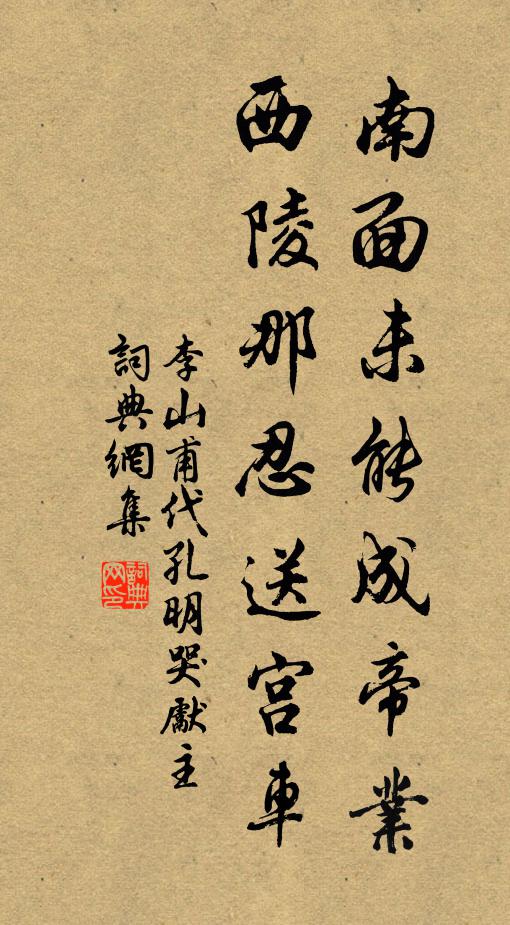 南面未能成帝業
西陵那忍送宮車
李山甫代孔明哭獻主
詞典網集
詞典網印